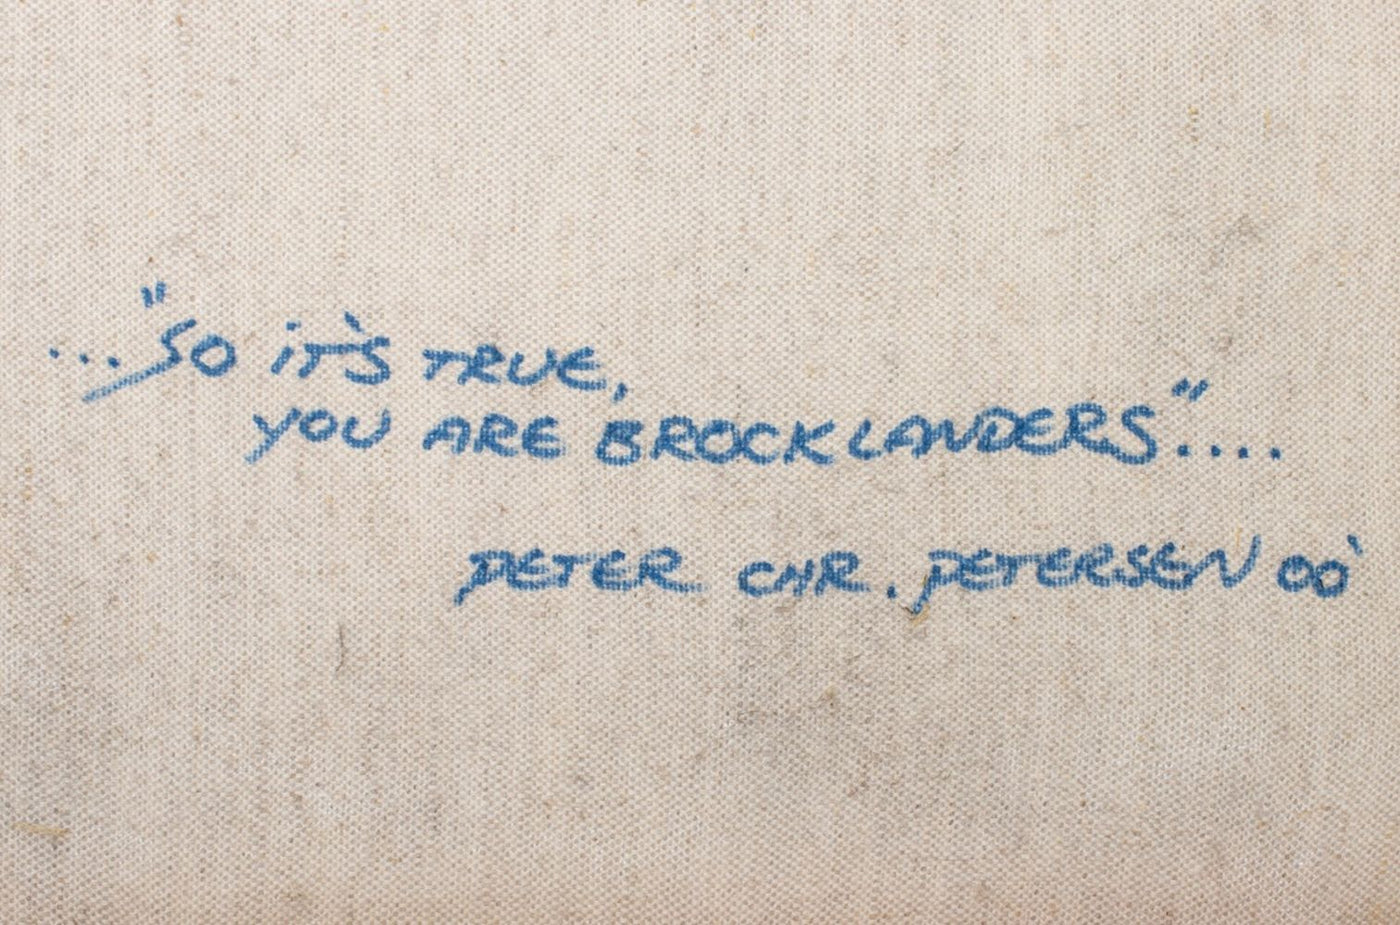 ..."SO iT'S TRUE,
YOU ARE BROCKLANDERS"....
PETER CHR. PETERSEN 00'